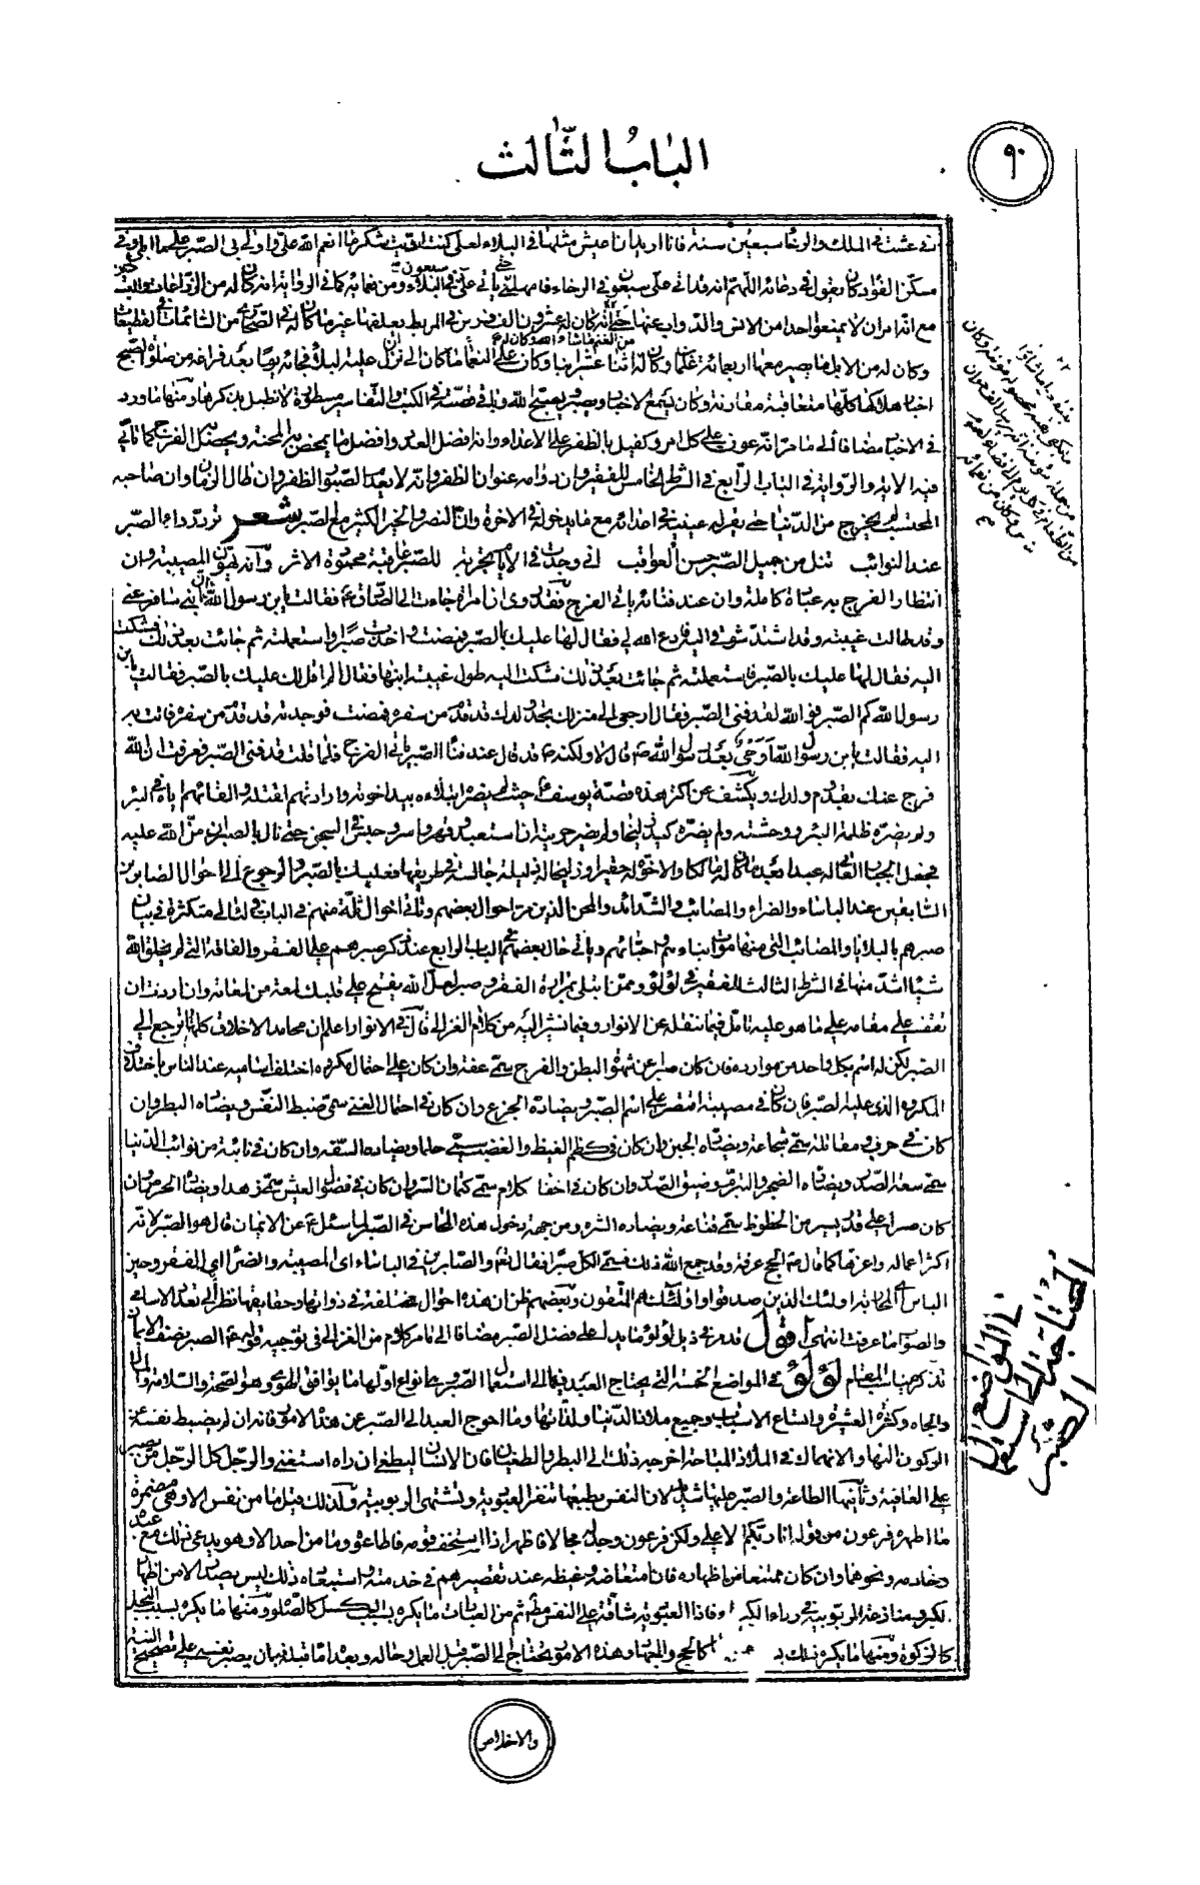 الباب الثالث
٩٠
انى عشت فى الملك والرخا سبعين سنة فانا اريد ان اعيش مثلها فى البلاء لعلى كنت اديت شكر ما انعم الله على واولى بى الصبر على ما ابلى وفى
مسكن الفؤاد كان يقول فى دعائه اللهم انه قد اتى على سبعون فى الرخاء فامهلنى حتى ياتى على سبعون فى البلاء ومن نعمائه كما فى الرواية انه كان له من الزراعات والبساتين
مع انه امر ان لا يمنعوا احدا من الانس والدواب عنها حتى انه كان له عشرون الف فرس فى المربط يعلفها غير ما كان له فى الصحارى من السائمات فى القطيعات
وكان له من الابل ما يصير معها اربعمائة غلما وكان له اثنا عشر ابنا وكان على النعما ما كان الى ان نزل عليه ليلا فجائه يوما بعد فراغه من صلوة الصبح
اخبار هلاكها كلها متعاقبة مقارنة وكان يسمع الاخبار ويصبر ويصبح لله وباقى قصته فى الكتب والتفاسير مسطورة لا نطيل بذكرها ومنها ما ورد
فى الاخبار مضافا الى ما مر انه عون على كل امر وكفيل بالظفر على الاعداء وانه افضل العدد وافضل ما يمحض به المحنة ويحصل الفرج كما تاتى
فيه الاية والرواية فى الباب الرابع فى الشرط الخامس للفقير وان دوامه عنوان الظفر وانه لا يعد الصبور الظفر وان طال الزمان وان صاحبه
المحتسب لم يخرج من الدنيا حتى يقر الله عينيه فى اعدائه مع ما يدخر له فى الاخرة وان النصر والخير الكثير مع الصبر شعر تردد رداء الصبر
عند النوائب تنل من جميل الصبر حسن العواقب انى وجدت فى الايام تجربة للصبر عاقبة محمودة الاثر وانه يهون المصيبة وان
انتظار الفرج به عبادة كاملة وان عند فنائه ياتى الفرج فقد روى ان امراة جاءت الى الصادق ع فقالت يابن رسول الله ان ابنى سافر عنى
وقد طالت غيبته وقد اشتد شوقى اليه فادع الله لى فقال لها عليك بالصبر فمضت واخذت صبرا واستعملته ثم جائت بعد ذلك فشكت
اليه فقال لها عليك بالصبر فاستعملته ثم جائت بعد ذلك فشكت اليه طول غيبة ابنها فقال الم اقل لك عليك بالصبر فقالت يابن
رسول الله كم الصبر فو الله لقد فنى الصبر فقال ارجعى الى منزلك تجدى ولدك قد قدم من سفره فمضت فوجدته قد قدم من سفره فاتت به
اليه فقالت يابن رسول الله اوحى بعد رسول الله ص قال لا ولكنه ص قد قال عند فناء الصبر ياتى الفرج فلما قلت قد فنى الصبر فعرفت ان الله
فرج عنك بقدوم ولدك ويكشف عن اكثر هذه قصة يوسف ع حيث لم يضره ابتلاءه بيد اخوته وارادتهم لقتله والقائهم اياه فى البئر
ولم يضره ظلمة البئر ووحشته ولم يضره كيد زليخا ولم يضر حريته ان استعبد وقهر واسر وحبس فى السجن حتى نال بالصبر ان من الله عليه
فجعل الجبار العاتى له عبدا بعد ما كان له مالكا والاخوة له حقيرا وزليخا له ذليلة جالسة فى طريقها فعليك بالصبر والرجوع الى احوال الصابرين
السابقين عند الباساء والضراء والمصائب والشدائد والمحن الذين مر احوال بعضهم وتاتى احوال ثلة منهم فى الباب فى لئالى متكثرة فى بيان
صبرهم بالبلايا والمصائب التى منها موت ابنائهم واحبائهم وياتى حال بعضهم فى الباب الرابع عند ذكر صبرهم على الفقر والفاقة التى لم يخلق الله
شيئا اشد منها فى الشرط الثالث للفقير فى لؤلؤ وممن ابتلى بمرارة الفقر وصبر لعل الله يفتح على قلبك لمعة من لمعاته وان اردت ان
تقف على مقامه على ما هو عليه تامل فيما ننقله عن الانوار وفيما نشير اليه من كلام الغزالى قال فى الانوار اعلم ان محامد الاخلاق كلها ترجع الى
الصبر لكن له اسم بكل واحد من موارده فان كان صبرا عن شهوة البطن والفرج سمى عفة وان كان على احتمال مكروه اختلف اساميه عند الناس باختلاف
المكروه الذى عليه الصبر فان كان فى مصيبة اقتصر على اسم الصبر ويضاده الجزع وان كان فى احتمال الغنى سمى ضبط النفس ويضاده البطر وان
كان فى حرب ومقاتلة سمى شجاعة ويضاده الجبن وان كان فى كظم الغيظ والغضب سمى حلما ويضاده السفه وان كان فى نائبة من نوائب الدنيا
سمى سعة الصدر ويضاده الضجر والتبرم وضيق الصدر وان كان فى اخفا كلام سمى كتمان السر وان كان فى فضول العيش سمى زهدا ويضاده الحرص وان
كان صبرا على قدر يسير من الحظوظ سمى قناعة ويضاده الشره ومن جهة دخول هذه المحاسن فى الصبر لما سئل ع عن الايمان قال هو الصبر لانه
اكثر اعماله واعزها كما قال ص الحج عرفة وقد جمع الله ذلك فسمى الكل صبرا فقال تع والصابرين فى الباساء اى المصيبة والضراء اى الفقر وحين
الباس اى المحاربة اولئك الذين صدقوا واولئك هم المتقون وبعضهم ظن ان هذه احوال مختلفة فى ذواتها وحقايقها نظرا الى تعدد الاسامى
والصواب ما عرفت انتهى اقول قد مر فى ذيل لؤلؤ ما يدل على فضل الصبر مضافا الى ما مر كلام من الغزالى فى توجيه قوله ع الصبر نصف الايمان
تذكرها يناسب المقام لؤلؤ فى المواضع الخمسة التى يحتاج العبد فيها الى استعمال الصبر وهى انواع اولها ما يوافق الهوى وهو الصحة والسلامة والمال
والجاه وكثرة العشيرة واتساع الاسباب وجميع ملاذ الدنيا ولذاتها وما احوج العبد الى الصبر عن هذه الامور فانه ان لم يضبط نفسه عن
الركون اليها والانهماك فى الملاذ المباحة اخرجه ذلك الى البطر والطغيان فان الانسان ليطغى ان راه استغنى والرجل كل الرجل من يصبر
على العافية وثانيها الطاعة والصبر عليها شديد لان النفس بطبعها تنفر العبودية وتشتهى الربوبية ولذلك قيل ما من نفس الا وهى مضمرة
ما اظهره فرعون من قوله انا ربكم الاعلى ولكن فرعون وجد له مجالا فاظهر اذ استخف قومه فاطاعوه وما من احد الا وهو يدعى ذلك مع عبده
وخادمه ونحوهما وان كان ممتنعا من اظهاره فان امتعاضه وغيظه عند تقصيرهم فى خدمته واستبعاده ذلك ليس يصدر الا من اظهار
الكبر ومنازعة الربوبية فى رداء الكبرياء فاذا العبودية شاقة على النفس مطلقا ثم من العبادات ما يكره بسبب الكسل كالصلوة ومنها ما يكره بسبب البخل
كالزكوة ومنها ما يكره بسببهما كالحج والجهاد وهذه الامور يحتاج الى الصبر قبل العمل وحاله وبعده اما قبله فبان يصبر نفسه على تصحيح النية
فى المواضع التى
يحتاج الى استعمال
الصبر
والاخلاص